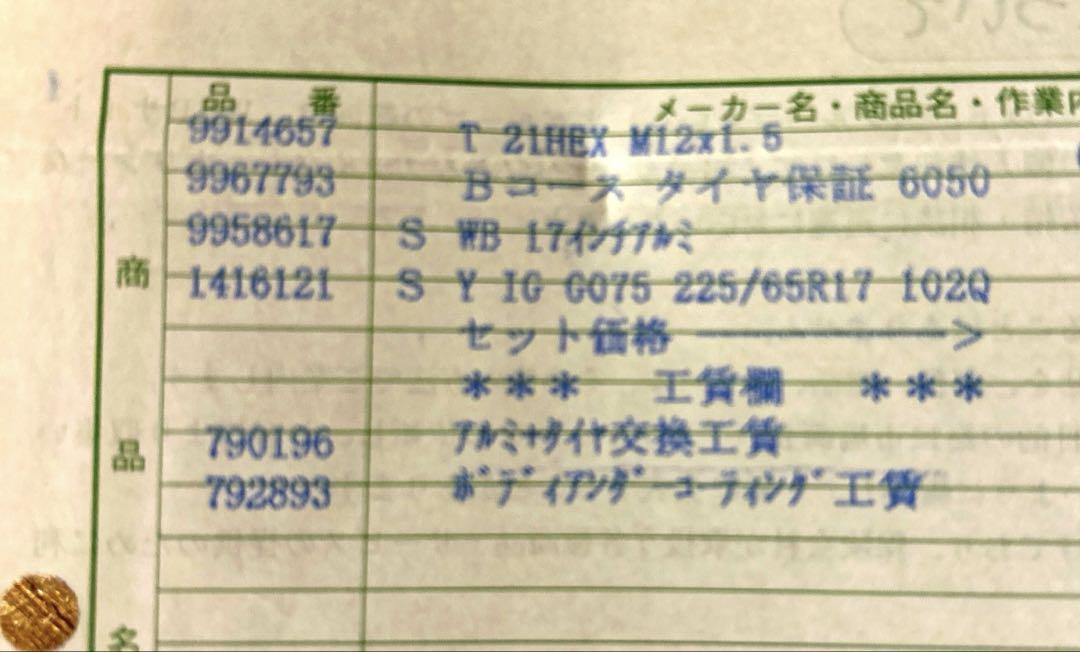 品 番 メーカー名・商品名・作業内
9914657 T 21HEX M12x1.5
9967793 Bコース タイヤ保証 6050
9958617 S WB 17インチアルミ
1416121 S Y IG G075 225/65R17 102Q
セット価格 ――――――>
*** 工賃欄 ***
790196 アルミ+タイヤ交換工賃
792893 ボディアンダーコーティング工賃
商
品
名